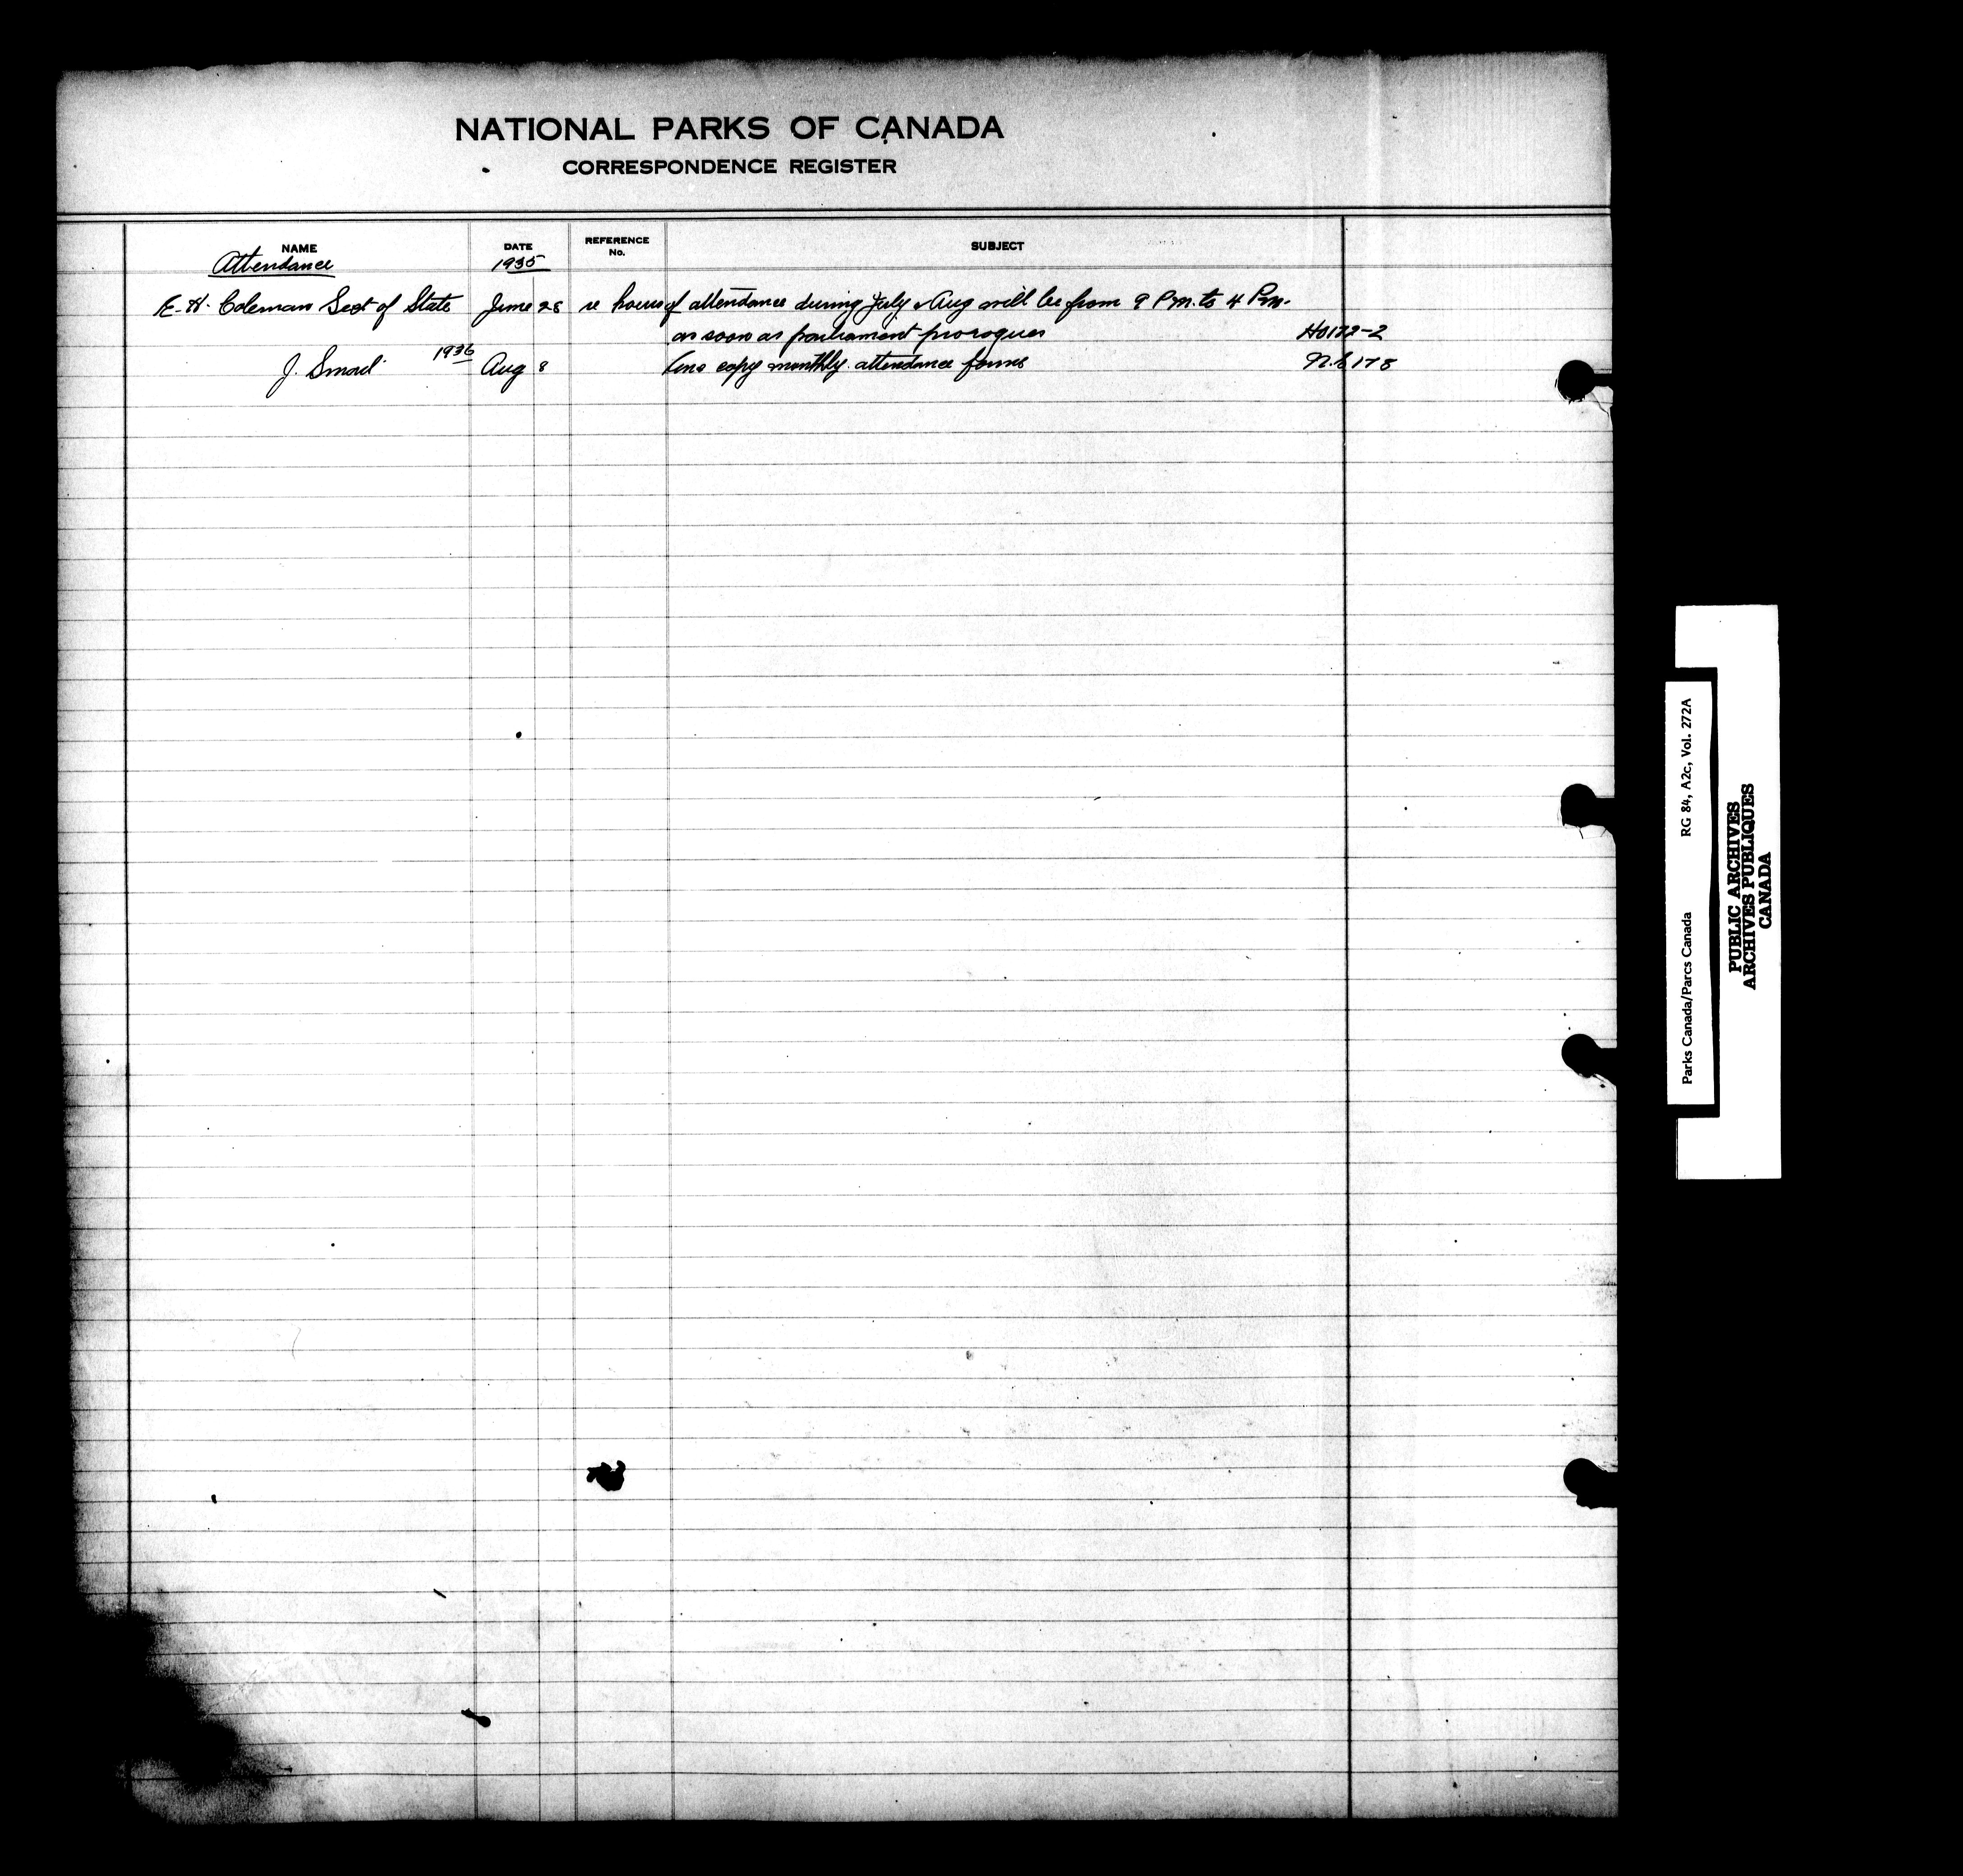 NATIONAL PARKS OF CANADA
CORRESPONDENCE REGISTER
NAME DATE REFERENCE No. SUBJECT
Attendance 1935
E. H. Coleman Sect of State June 28 re hours of attendance during July & Aug will be from 9 P.m. to 4 P.m.
as soon as parliament prorogues H0172-2
1936
J. Smail Aug 8 copy monthly attendance forms 178
Parks Canada/Parcs Canada RG 84, A2c, Vol. 272A
PUBLIC ARCHIVES
ARCHIVES PUBLIQUES
CANADA